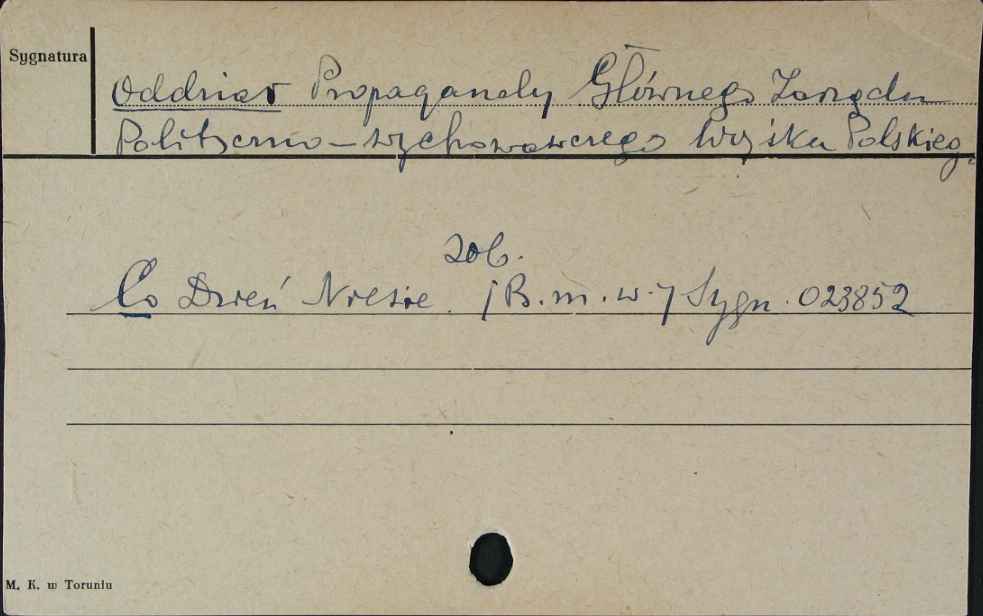 Sygnatura
Oddział Propagandy Głównego Zarządu
Polityczno-wychowawczego Wojska Polskiego
zob.
Co Dzień Niesie. [B.m.w.] Sygn. 023852
M. K. w Toruniu